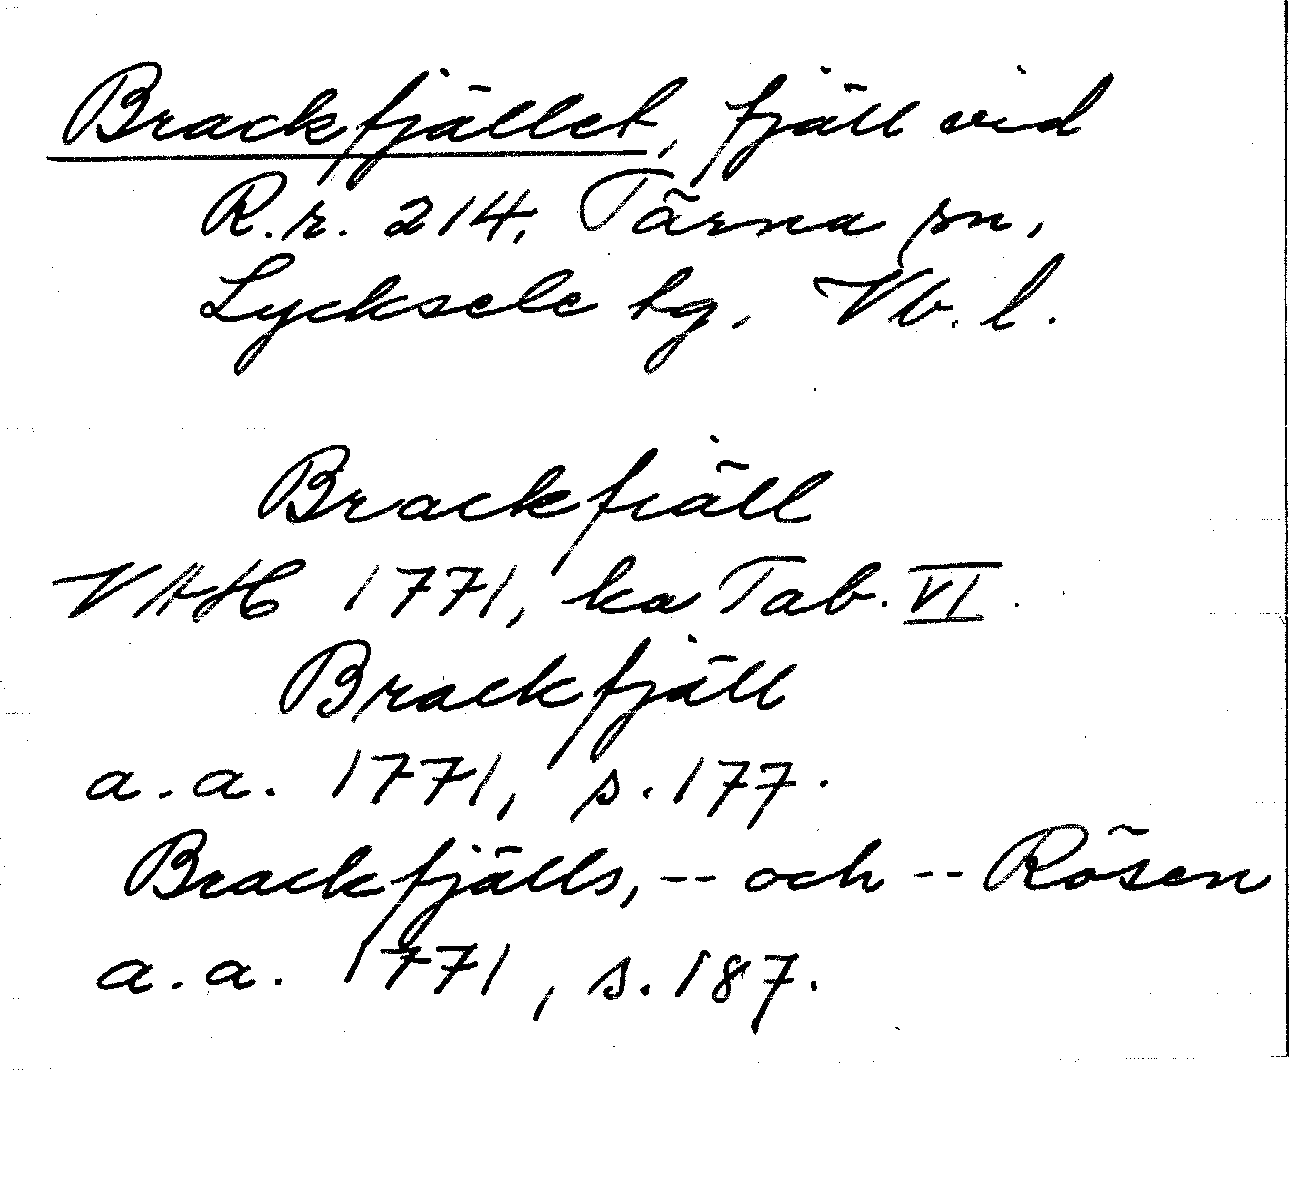 Brackfjället, fjäll vid
R.r. 214, Tärna sn,
Lycksele tg. Vb. l.
Brackfiäll
VAH 1771, ka Tab. VI.
Brackfjäll
a.a. 1771, s. 177.
Brackfjälls, -- och -- Rösen
a.a. 1771, s. 187.